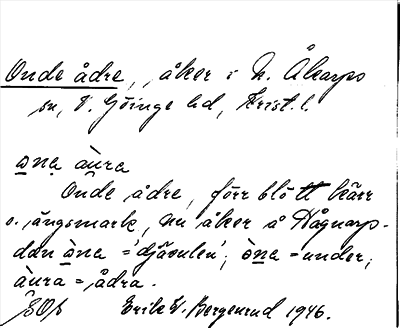 Onde ådre, åker i N. Åkarps
sn, V. Göinge hd, Krist. l.
ɷna àùra
Onde ådre, förr blött kärr
o. ängsmark, nu åker å Hågnarp.
dan òna = 'djävulen'; òna = under;
àura = ådra.
Erik W. Bergenrud 1946.